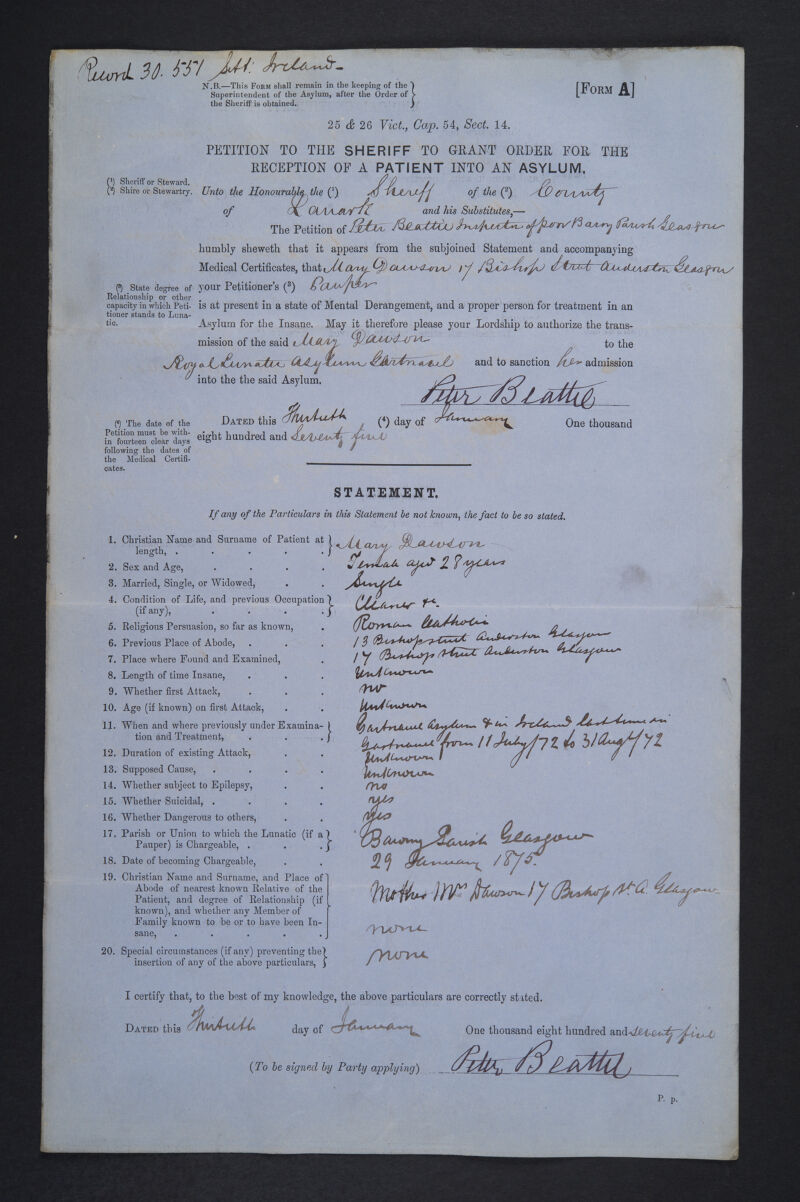 Record 30. 551 Sett. Ireland
N.B.—This Form shall remain in the keeping of the
Superintendent of the Asylum, after the Order of
the Sheriff is obtained.
[Form A]
25 & 26 Vict., Cap. 54, Sect. 14.
PETITION TO THE SHERIFF TO GRANT ORDER FOR THE
RECEPTION OF A PATIENT INTO AN ASYLUM.
(1) Sheriff or Steward.
(2) Shire or Stewartry.
Unto the Honourable the (1) Sheriff of the (2) County
of Lanark and his Substitutes,—
The Petition of Peter Beattie Inspector of poor Barony Parish Glasgow
humbly sheweth that it appears from the subjoined Statement and accompanying
Medical Certificates, that Mary Dawson 17 Bishop Street Anderston Glasgow
(3) State degree of
Relationship or other
capacity in which Peti-
tioner stands to Luna-
tic.
your Petitioner's (3) Pauper
is at present in a state of Mental Derangement, and a proper person for treatment in an
Asylum for the Insane. May it therefore please your Lordship to authorize the trans-
mission of the said Mary Dawson to the
Royal Lunatic Asylum Gartnavel and to sanction her admission
into the the said Asylum.
Peter Beattie
(4) The date of the
Petition must be with-
in fourteen clear days
following the dates of
the Medical Certifi-
cates.
Dated this Thirtieth (4) day of January One thousand
eight hundred and Seventy five
STATEMENT.
If any of the Particulars in this Statement be not known, the fact to be so stated.
1. Christian Name and Surname of Patient at
length, . . . . . Mary Dawson
2. Sex and Age, . . . . Female aged 28 years
3. Married, Single, or Widowed, . . Single
4. Condition of Life, and previous Occupation
(if any), . . . . Cleaner &c.
5. Religious Persuasion, so far as known, . Roman Catholic
6. Previous Place of Abode, . . . 13 Bishop street Anderston Glasgow
7. Place where Found and Examined, . 17 Bishop Street Anderston Glasgow
8. Length of time Insane, . . . Unknown
9. Whether first Attack, . . . no
10. Age (if known) on first Attack, . . Unknown
11. When and where previously under Examina-
tion and Treatment, . . . Gartnavel Asylum & in Ireland last time in
Gartnavel from 11 July/72 to 31 Augt/72
12. Duration of existing Attack, . . Unknown
13. Supposed Cause, . . . . Unknown
14. Whether subject to Epilepsy, . . no
15. Whether Suicidal, . . . . yes
16. Whether Dangerous to others, . . yes
17. Parish or Union to which the Lunatic (if a
Pauper) is Chargeable, . . . Barony Parish Glasgow
18. Date of becoming Chargeable, . . 29 January 1875.
19. Christian Name and Surname, and Place of
Abode of nearest known Relative of the
Patient, and degree of Relationship (if
known), and whether any Member of
Family known to be or to have been In-
sane, . . . . . Mother Mrs Dawson 17 Bishop St. A. Glasgow
none
20. Special circumstances (if any) preventing the
insertion of any of the above particulars, none
I certify that, to the best of my knowledge, the above particulars are correctly stated.
Dated this Thirtieth day of January One thousand eight hundred and seventy five
(To be signed by Party applying) Peter Beattie
P. p.